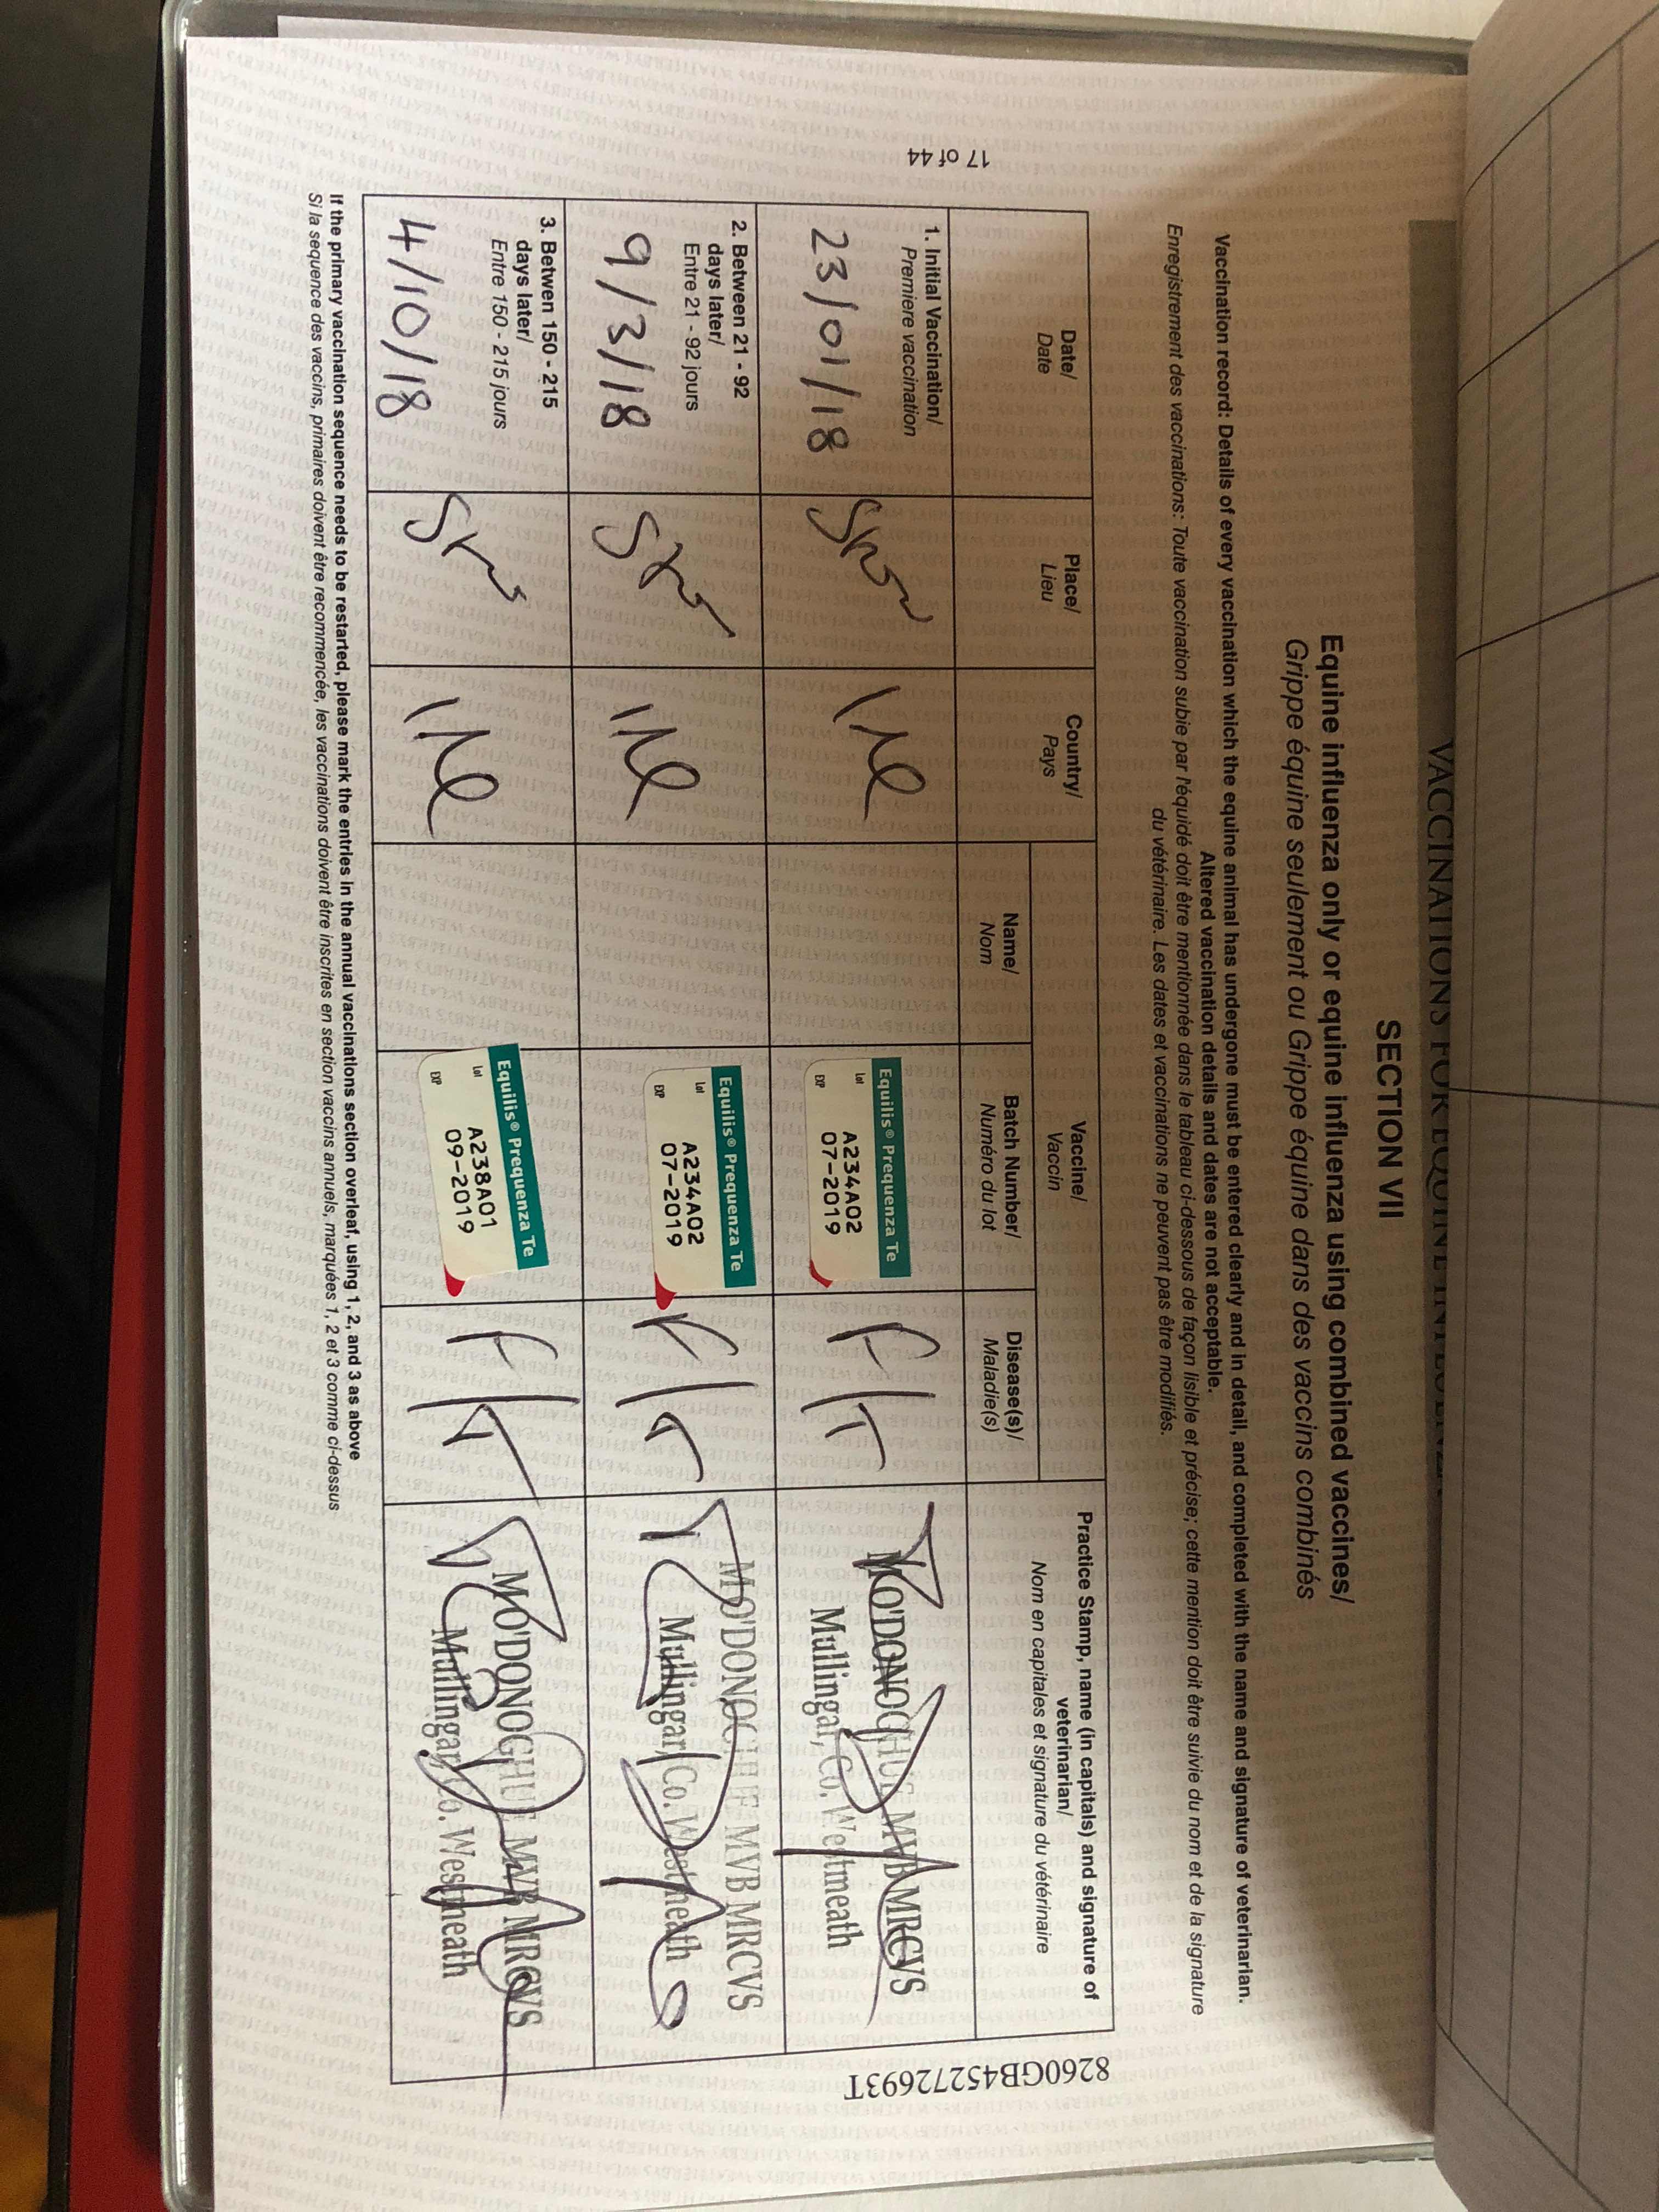 VACCINATIONS FOR EQUINE INFLUENZA
SECTION VII
Equine influenza only or equine influenza using combined vaccines/
Grippe équine seulement ou Grippe équine dans des vaccins combinés
Vaccination record: Details of every vaccination which the equine animal has undergone must be entered clearly and in detail, and completed with the name and signature of veterinarian.
Altered vaccination details and dates are not acceptable.
Enregistrement des vaccinations: Toute vaccination subie par l'équidé doit être mentionnée dans le tableau ci-dessous de façon lisible et précise; cette mention doit être suivie du nom et de la signature
du vétérinaire. Les dates et vaccinations ne peuvent pas être modifiés.
Date/
Date
Place/
Lieu
Country/
Pays
Vaccine/
Vaccin
Name/
Nom
Batch Number/
Numéro du lot
Disease(s)/
Maladie(s)
Practice Stamp, name (in capitals) and signature of
veterinarian/
Nom en capitales et signature du vétérinaire
1. Initial Vaccination/
Premiere vaccination
23/01/18
IRe
Equilis® Prequenza Te
Lot A234A02
EXP 07-2019
F/T
M O'DONOGHUE MVB MRCVS
Mullingar, Co. Westmeath
2. Between 21 - 92
days later/
Entre 21 - 92 jours
9/3/18
IRe
Equilis® Prequenza Te
Lot A234A02
EXP 07-2019
F/T
M O'DONOGHUE MVB MRCVS
Mullingar, Co. Westmeath
3. Betwen 150 - 215
days later/
Entre 150 - 215 jours
4/10/18
IRe
Equilis® Prequenza Te
Lot A238A01
EXP 09-2019
F/T
M O'DONOGHUE MVB MRCVS
Mullingar, Co. Westmeath
If the primary vaccination sequence needs to be restarted, please mark the entries in the annual vaccinations section overleaf, using 1, 2, and 3 as above
Si la sequence des vaccins, primaires doivent être recommencée, les vaccinations doivent être inscrites en section vaccins annuels, marquées 1, 2 et 3 comme ci-dessus
17 of 44
8260GB45272693T